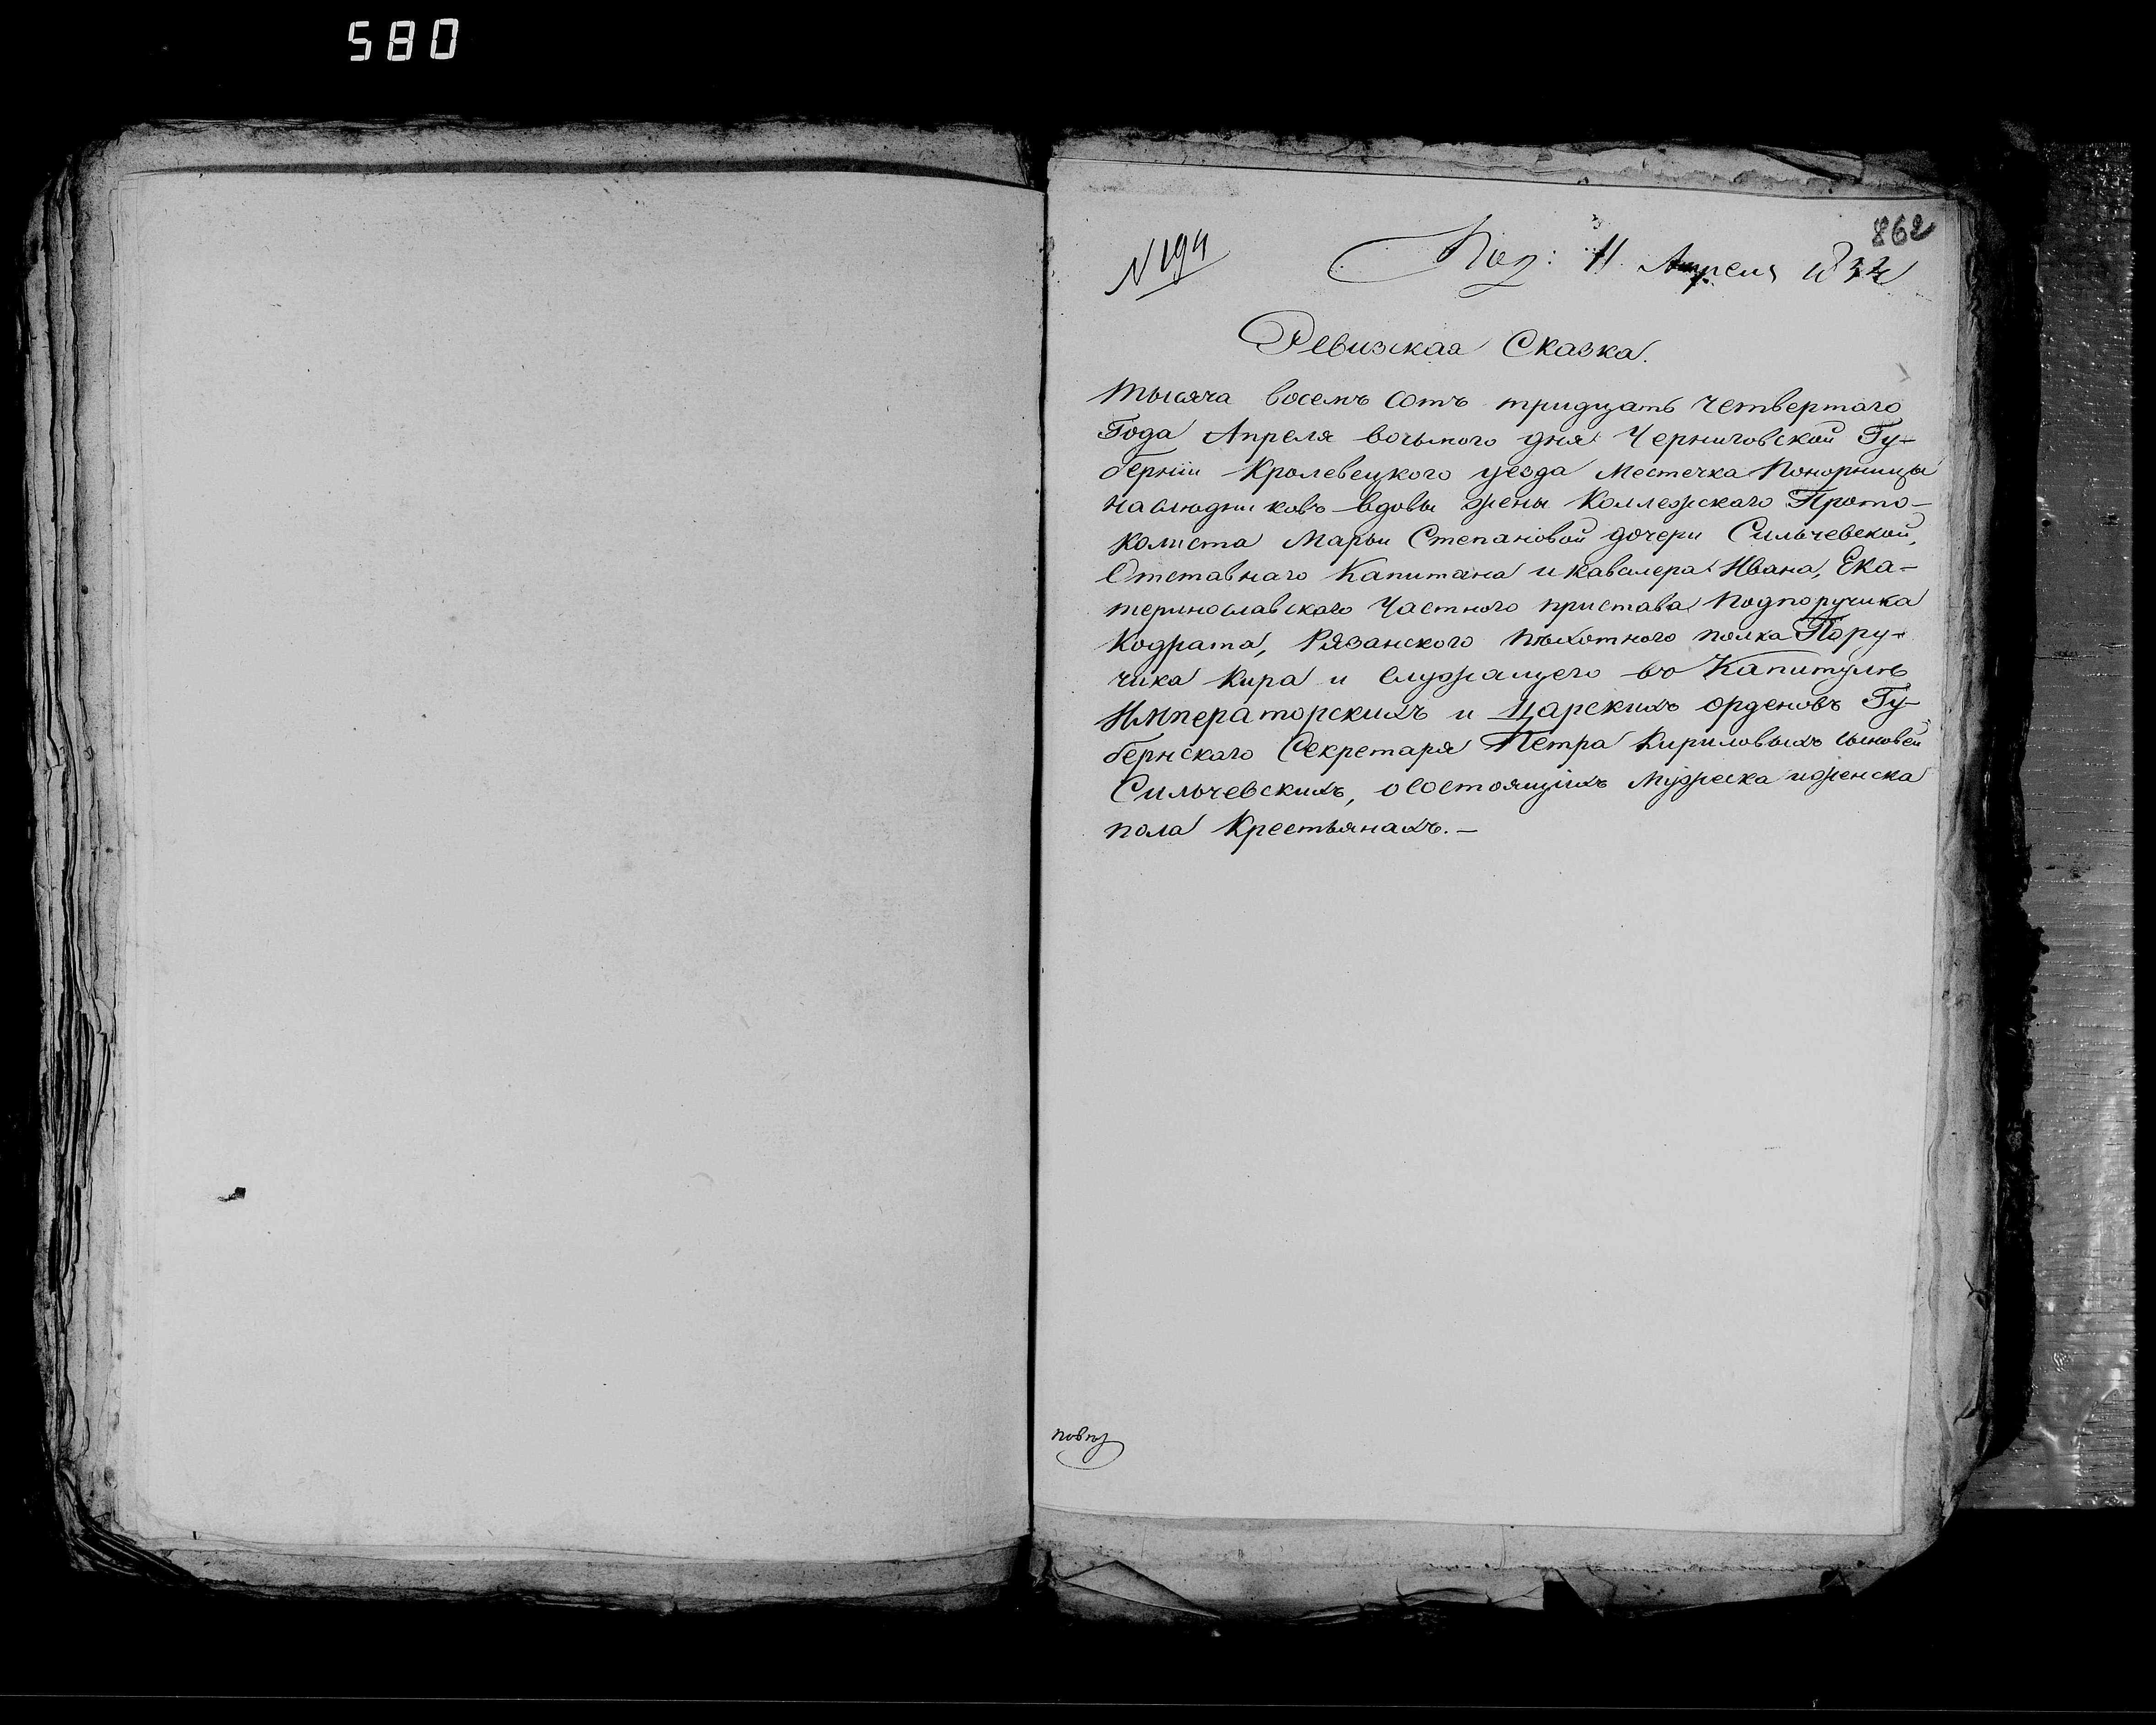 580
862
N 194
Пол: 11 Апреля 1834
Ревизская Сказка.
Тысяча восемь сотъ тридцать четвертаго
Года Апреля восьмого дня Черниговской Гу-
берніи Кролевецкого уезда Местечка Понорницы
наследниковъ вдовы жены Коллежскаго Прото-
колиста Марьи Степановой дочери Сильчевской,
Отставнаго Капитана и кавалера Ивана, Ека-
теринославскаго Частного пристава Подпоручика
Кодрата, Рязанского пѣхотного полка Пору-
чика Кира и служащего въ Капитулѣ
Императорскихъ и Царскихъ орденовъ Гу-
бернскаго Секретаря Петра Кириловыхъ сыновей
Сильчевскихъ, о состоящихъ мужеска и женска
пола Крестьянахъ.—